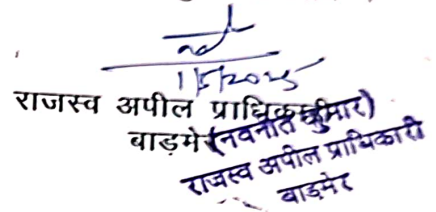 1/5/2025
राजस्व अपील प्राधिकारी
बाड़मेर
(नवनीत कुमार)
राजस्व अपील प्राधिकारी
बाड़मेर